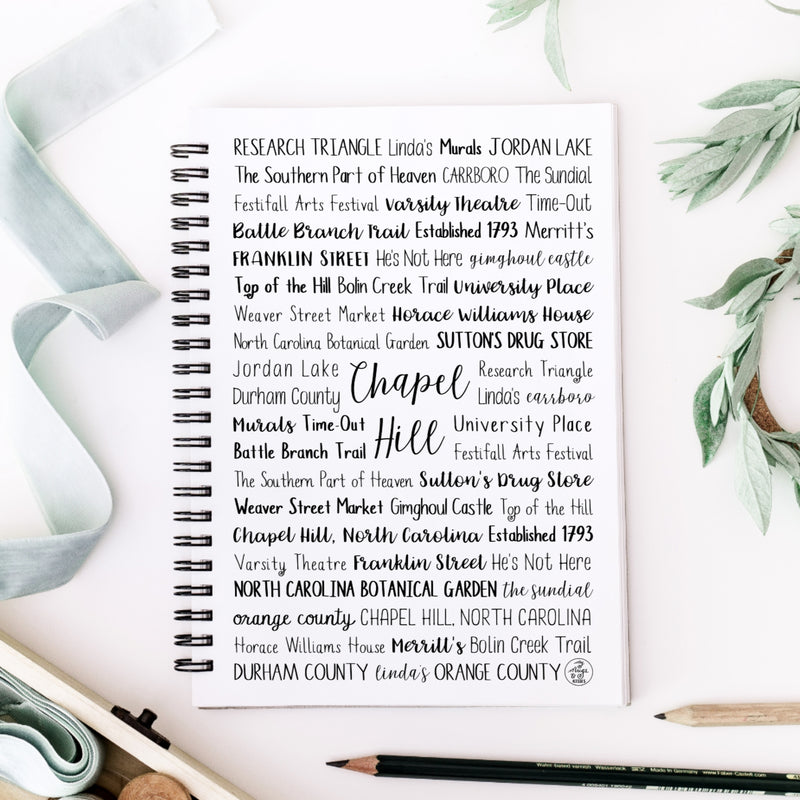 RESEARCH TRIANGLE Linda's Murals JORDAN LAKE
The Southern Part of Heaven CARRBORO The Sundial
Festifall Arts Festival Varsity Theatre Time-Out
Battle Branch Trail Established 1793 Merritt's
FRANKLIN STREET He's Not Here gimghoul castle
Top of the Hill Bolin Creek Trail University Place
Weaver Street Market Horace Williams House
North Carolina Botanical Garden SUTTON'S DRUG STORE
Jordan Lake Chapel Research Triangle
Durham County Linda's carrboro
Murals Time-Out Hill University Place
Battle Branch Trail Festifall Arts Festival
The Southern Part of Heaven Sutton's Drug Store
Weaver Street Market Gimghoul Castle Top of the Hill
Chapel Hill, North Carolina Established 1793
Varsity Theatre Franklin Street He's Not Here
NORTH CAROLINA BOTANICAL GARDEN the sundial
orange county CHAPEL HILL, NORTH CAROLINA
Horace Williams House Merritt's Bolin Creek Trail
DURHAM COUNTY linda's ORANGE COUNTY
Made in Germany www.Faber-Castell.com